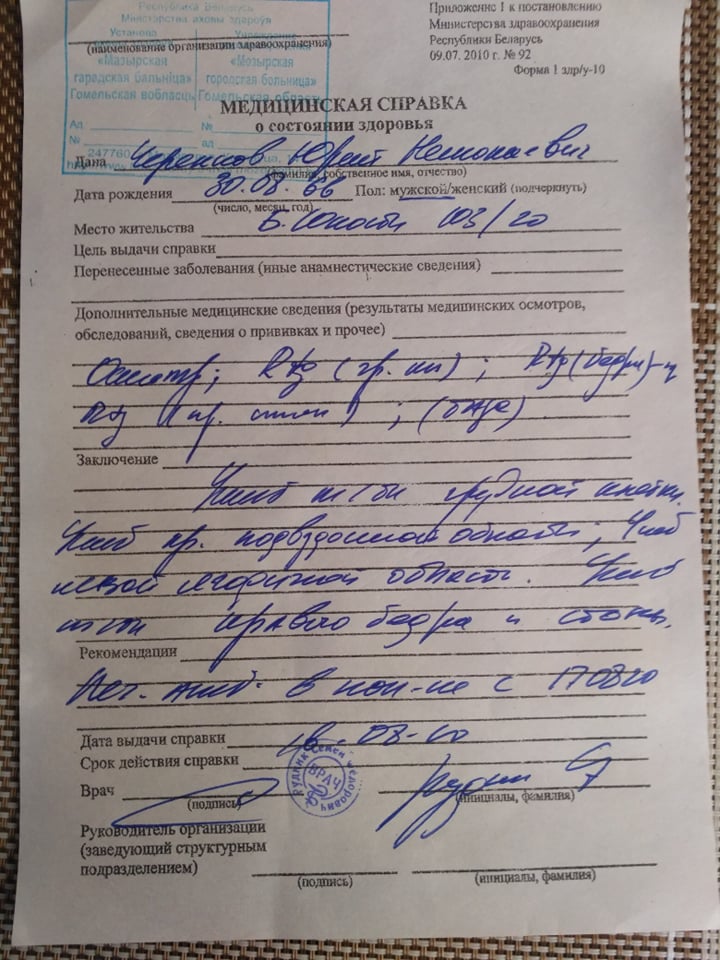 Рэспубліка Беларусь
Міністэрства аховы здароўя
Установа Учреждение
"Мазырская "Мозырская
гарадская бальніца" городская больница"
Гомельская вобласць Гомельская область
Ад № 
№ ад
247760
Приложение 1 к постановлению
Министерства здравоохранения
Республики Беларусь
09.07. 2010 г. № 92
Форма 1 здр/у-10
(наименование организации здравоохранения)
МЕДИЦИНСКАЯ СПРАВКА
о состоянии здоровья
Дана Юрий
(фамилия, собственное имя, отчество)
Дата рождения 30.08.66 Пол: мужской/женский (подчеркнуть)
(число, месяц, год)
Место жительства Б. Юности 103/20
Цель выдачи справки
Перенесенные заболевания (иные анамнестические сведения)
Дополнительные медицинские сведения (результаты медицинских осмотров,
обследований, сведения о прививках и прочее)
Осмотр; Rtg (гр. кл) ; Rtg (бедра)
Rtg (пр. стопы) ; (таза)
Заключение
Ушиб грудной клетки.
Ушиб пр. подвздошной области; Ушиб
левой ягодичной области. Ушиб
правого бедра и стопы.
Рекомендации
в пол-ке с 170820
Дата выдачи справки 16-08-20
Срок действия справки
Врач
(подпись) (инициалы, фамилия)
ВРАЧ
Руководитель организации
(заведующий структурным
подразделением)
(подпись) (инициалы, фамилия)